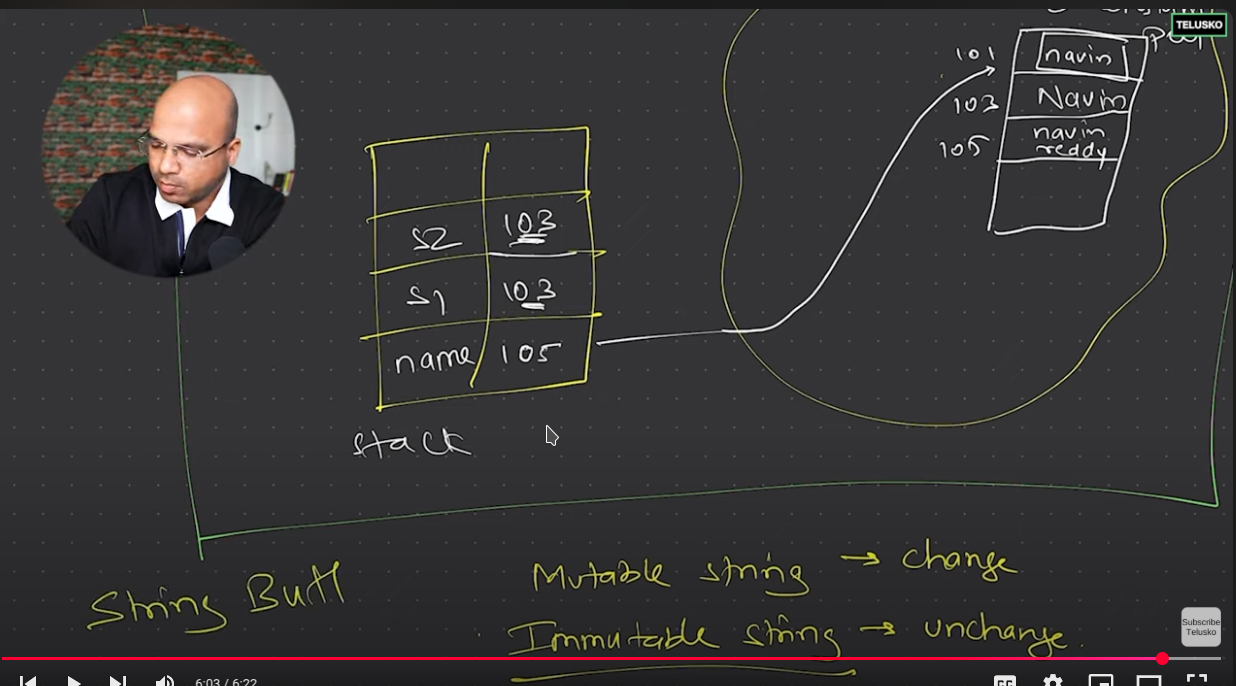 TELUSKO
pool
101 navin
103 Navin
105 navin
reddy
S2 103
S1 103
name 105
stack
Mutable string → change
String Buff
Immutable string → unchange.
Subscribe
Telusko
6:03 / 6:22
CC